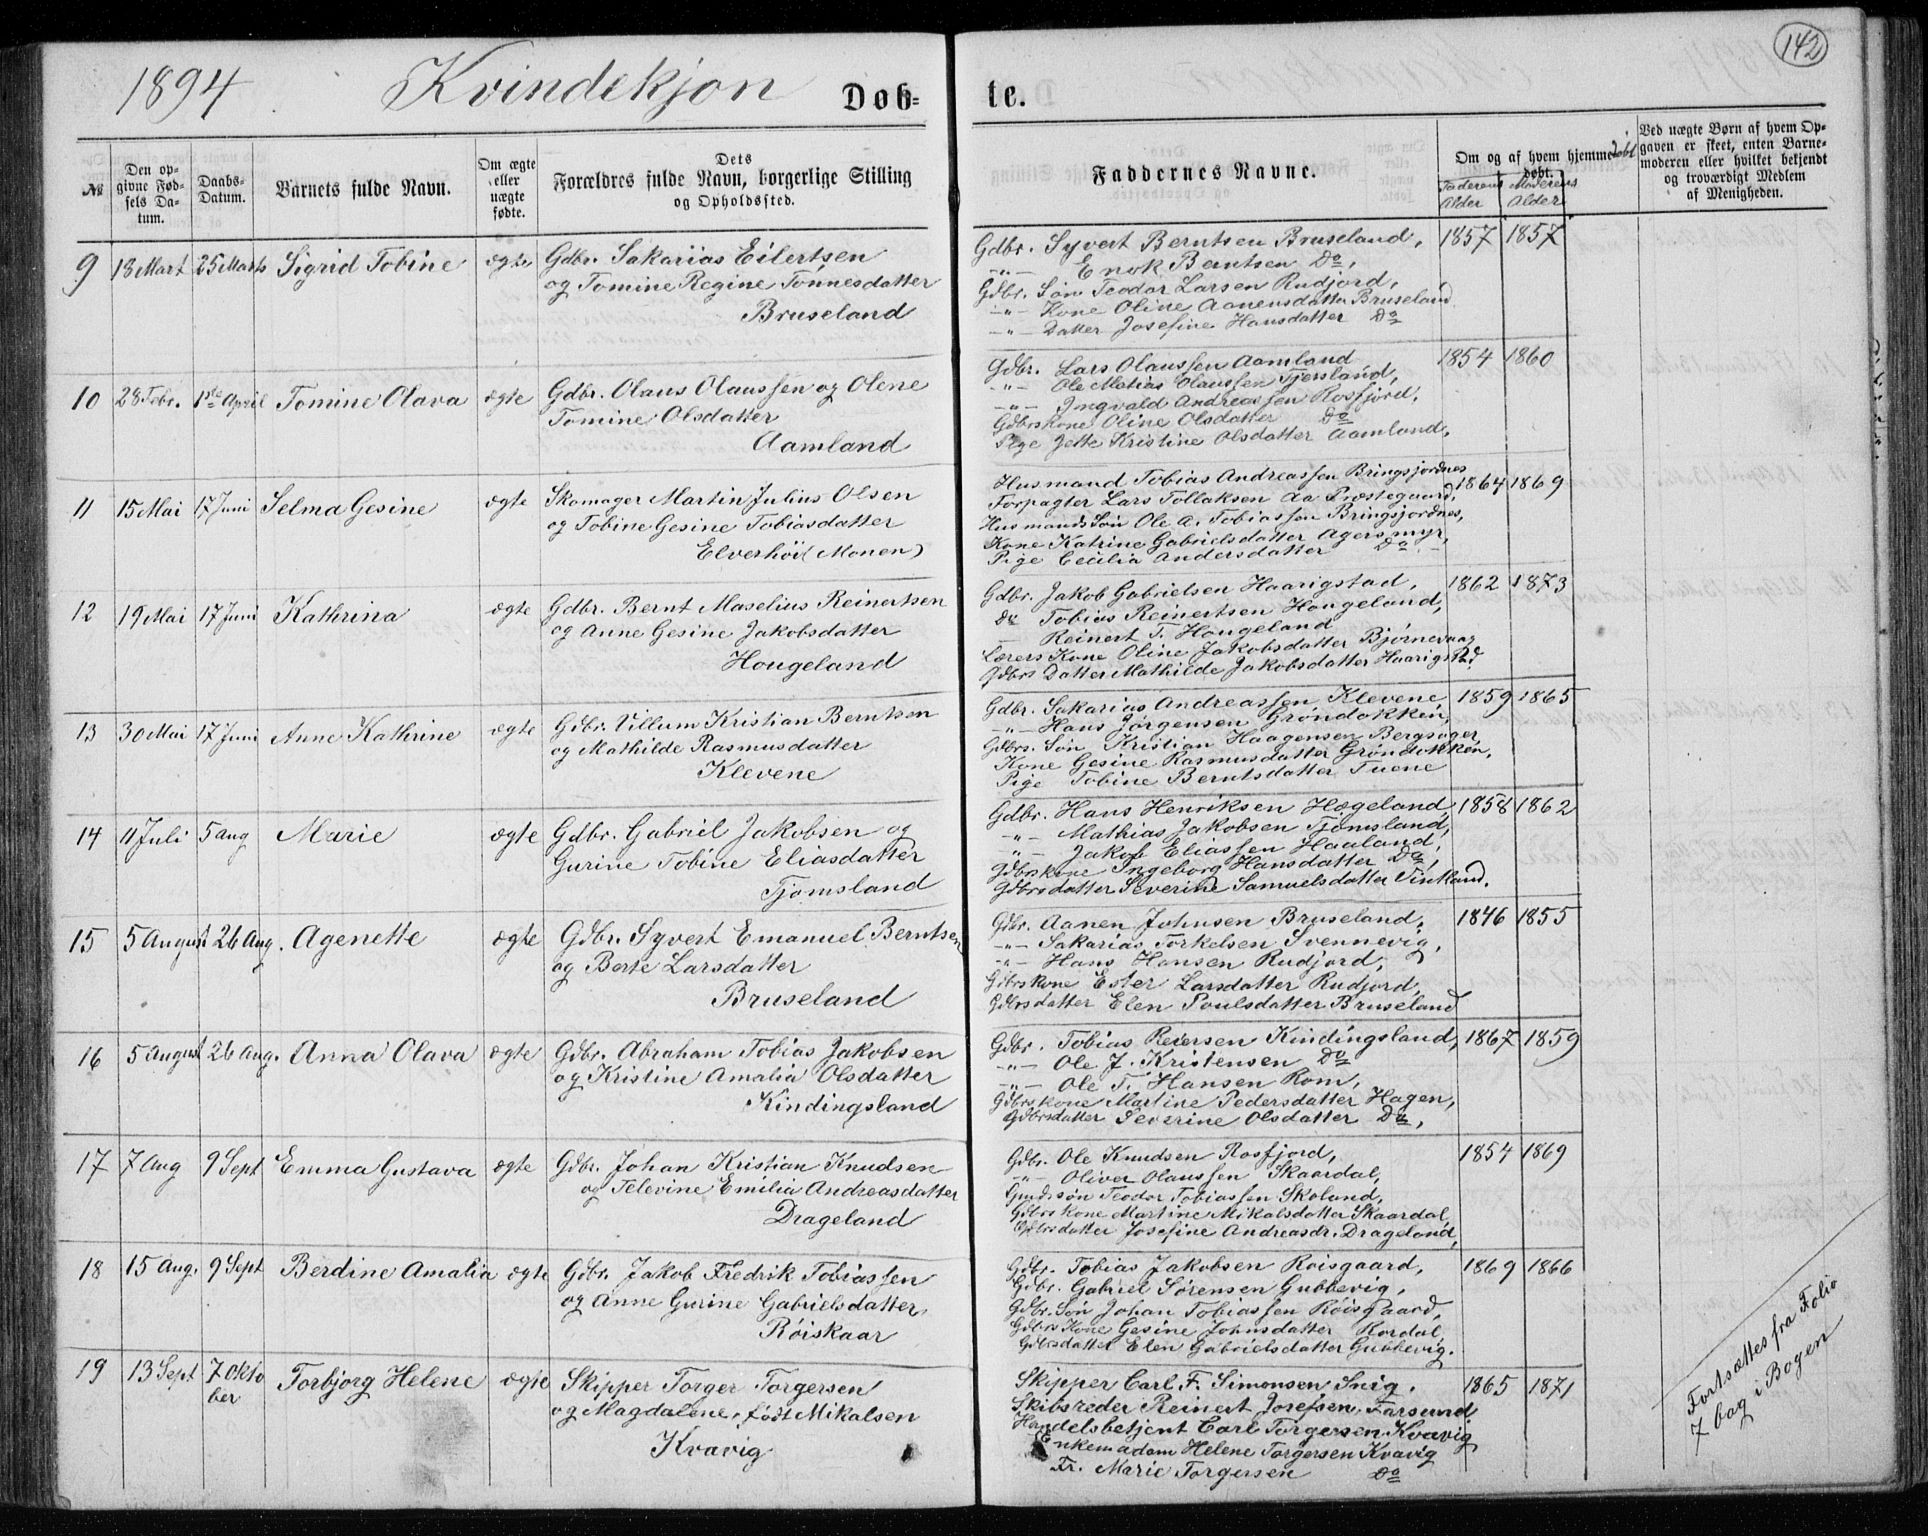 142
1894 Kvindekjøn Døb= te.
№ Den opgivne Fødsels Datum. Daabs-Datum. Barnets fulde Navn. Om ægte eller uægte fødte. Dets Forældres fulde Navn, borgerlige Stilling og Opholdssted. Faddernes Navne. Om og af hvem hjemmedøbt. døbt Faderens Alder Moderens Alder Ved uægte Børn af hvem Opgaven er skeet, enten Barnemoderen eller hvilket bekjendt og troværdigt Medlem af Menigheden.
9 18 Mart 25 Marts Sigrid Tobine ægte Gdbr. Sakarias Eilertsen
og Tomine Regine Tønnesdatter
Bruseland
Gdbr. Syvert Berntsen Bruseland, 1857 1857
-"- Enok Berntsen Do,
Gdbr. Søn Teodor Larsen Rudjord,
-"- Kone Oline Aanensdatter Bruseland
-"- Datter Josefine Hansdatter Do
10 28 Febr. 1ste April Tomine Olava ægte Gdbr. Olaus Olaussen og Olene
Tomine Olsdatter
Aamland
Gdbr. Lars Olaussen Aamland 1854 1860
-"- Ole Matias Olaussen Tjersland,
-"- Ingvald Andreassen Rosfjord,
Gdbrskone Oline Olsdatter Do
Pige Jette Kristine Olsdatter Aamland,
11 15 Mai 17 Juni Selma Gesine ægte Skomager Martin Julius Olsen
og Tobine Gesine Tobiasdatter
Elverhöi (Monen)
Husmand Tobias Andreassen Bringsjordnes
Forpagter Lars Tollaksen Aa Præstegaard, 1864 1869
Husmands Søn Ole A. Tobiassen Bringsjordnes,
Kone Katrine Gabrielsdatter Agersmyr,
Pige Cecilia Andersdatter Do
12 19 Mai 17 Juni Kathrina ægte Gdbr. Bernt Maselius Reinertsen
og Anne Gesine Jakobsdatter
Hougeland
Gdbr. Jakob Gabrielsen Haarigstad, 1862 1873
do Tobias Reinertsen Hougeland,
- Reinert T. Hougeland
Lærers Kone Oline Jakobsdatter Bjørnevaag
Gdbrs Datter Mathilde Jakobsdatter Haarigstad
13 30 Mai 17 Juni Anne Kathrine ægte Gdbr. Villum Kristian Berntsen
og Mathilde Rasmusdatter
Klevene
Gdbr. Sakarias Andreassen Klevene, 1859 1865
-"- Hans Jørgensen Grøndokken,
Gdbrs. Søn Kristian Haagensen Bergsager
Kone Gesine Rasmusdatter Grøndokken,
Pige Tobine Berntsdatter Tuene
14 11 Juli 5 Aug Marie ægte Gdbr. Gabriel Jakobsen og
Gurine Tobine Eliasdatter
Tjomsland
Gdbr. Hans Henriksen Hægeland, 1858 1862
-"- Mathias Jakobsen Tjomsland,
-"- Jakob Eliassen Haaland,
Gdbrskone Ingeborg Hansdatter Do,
Gdbrsdatter Severine Samuelsdatter Vintland.
15 5 August 26 Aug. Agenette ægte Gdbr. Syvert Emanuel Berntsen
og Berte Larsdatter
Bruseland
Gdbr. Aanen Johnsen Bruseland, 1846 1855
-"- Sakarias Torkelsen Svennevig,
-"- Hans Hansen Rudjord,
Gdbrskone Ester Larsdatter Rudjord,
Gdbrsdatter Elen Poulsdatter Bruseland
16 5 August 26 Aug. Anna Olava ægte Gdbr. Abraham Tobias Jakobsen
og Kristine Amalia Olsdatter
Kindingsland
Gdbr. Tobias Reiersen Kindingsland, 1867 1859
-"- Ole J. Kristensen Do
-"- Ole T. Hansen Rom,
Gdbrskone Martine Pedersdatter Hagen,
Gdbrsdatter Severine Olsdatter Do,
17 7 Aug 9 Sept Emma Gustava ægte Gdbr. Johan Kristian Knudsen
og Televine Emilia Andreasdatter
Drageland
Gdbr. Ole Knudsen Rosfjord, 1854 1869
-"- Oliver Olaussen Skaardal,
Teodor Tobiassen Skoland,
Gdbrskone Martine Mikalsdatter Skaardal,
Gdbrsdatter Josefine Andreasdr. Drageland,
18 15 Aug. 9 Sept Berdine Amalia ægte Gdbr. Jakob Fredrik Tobiassen
og Anne Gurine Gabrielsdatter
Røiskaar
Gdbr. Tobias Jakobsen Roisgaard, 1869 1866
Gdbr. Gabriel Sørensen Gubbevig,
Gdbr. Søn Johan Tobiassen Røisgaard,
Gdbrs Kone Gesine Johnsdatter Kordal,
Gdbrsdatter Elen Gabrielsdatter Gubbevig.
19 13 Sept 7 Oktober Torbjorg Helene ægte Skipper Torger Torgersen
og Magdalene, født Mikalsen
Kvavig
Skipper Carl F. Simonsen, Snig, 1865 1871
Skibsreder Reinert Josefsen, Farsund
Handelsbetjent Carl Torgersen Kvavig
Enkemadam Helene Torgersen Kvavig
Fr. Marie Torgersen Do
Fortsættes fra Folio
7 bag i Bogen